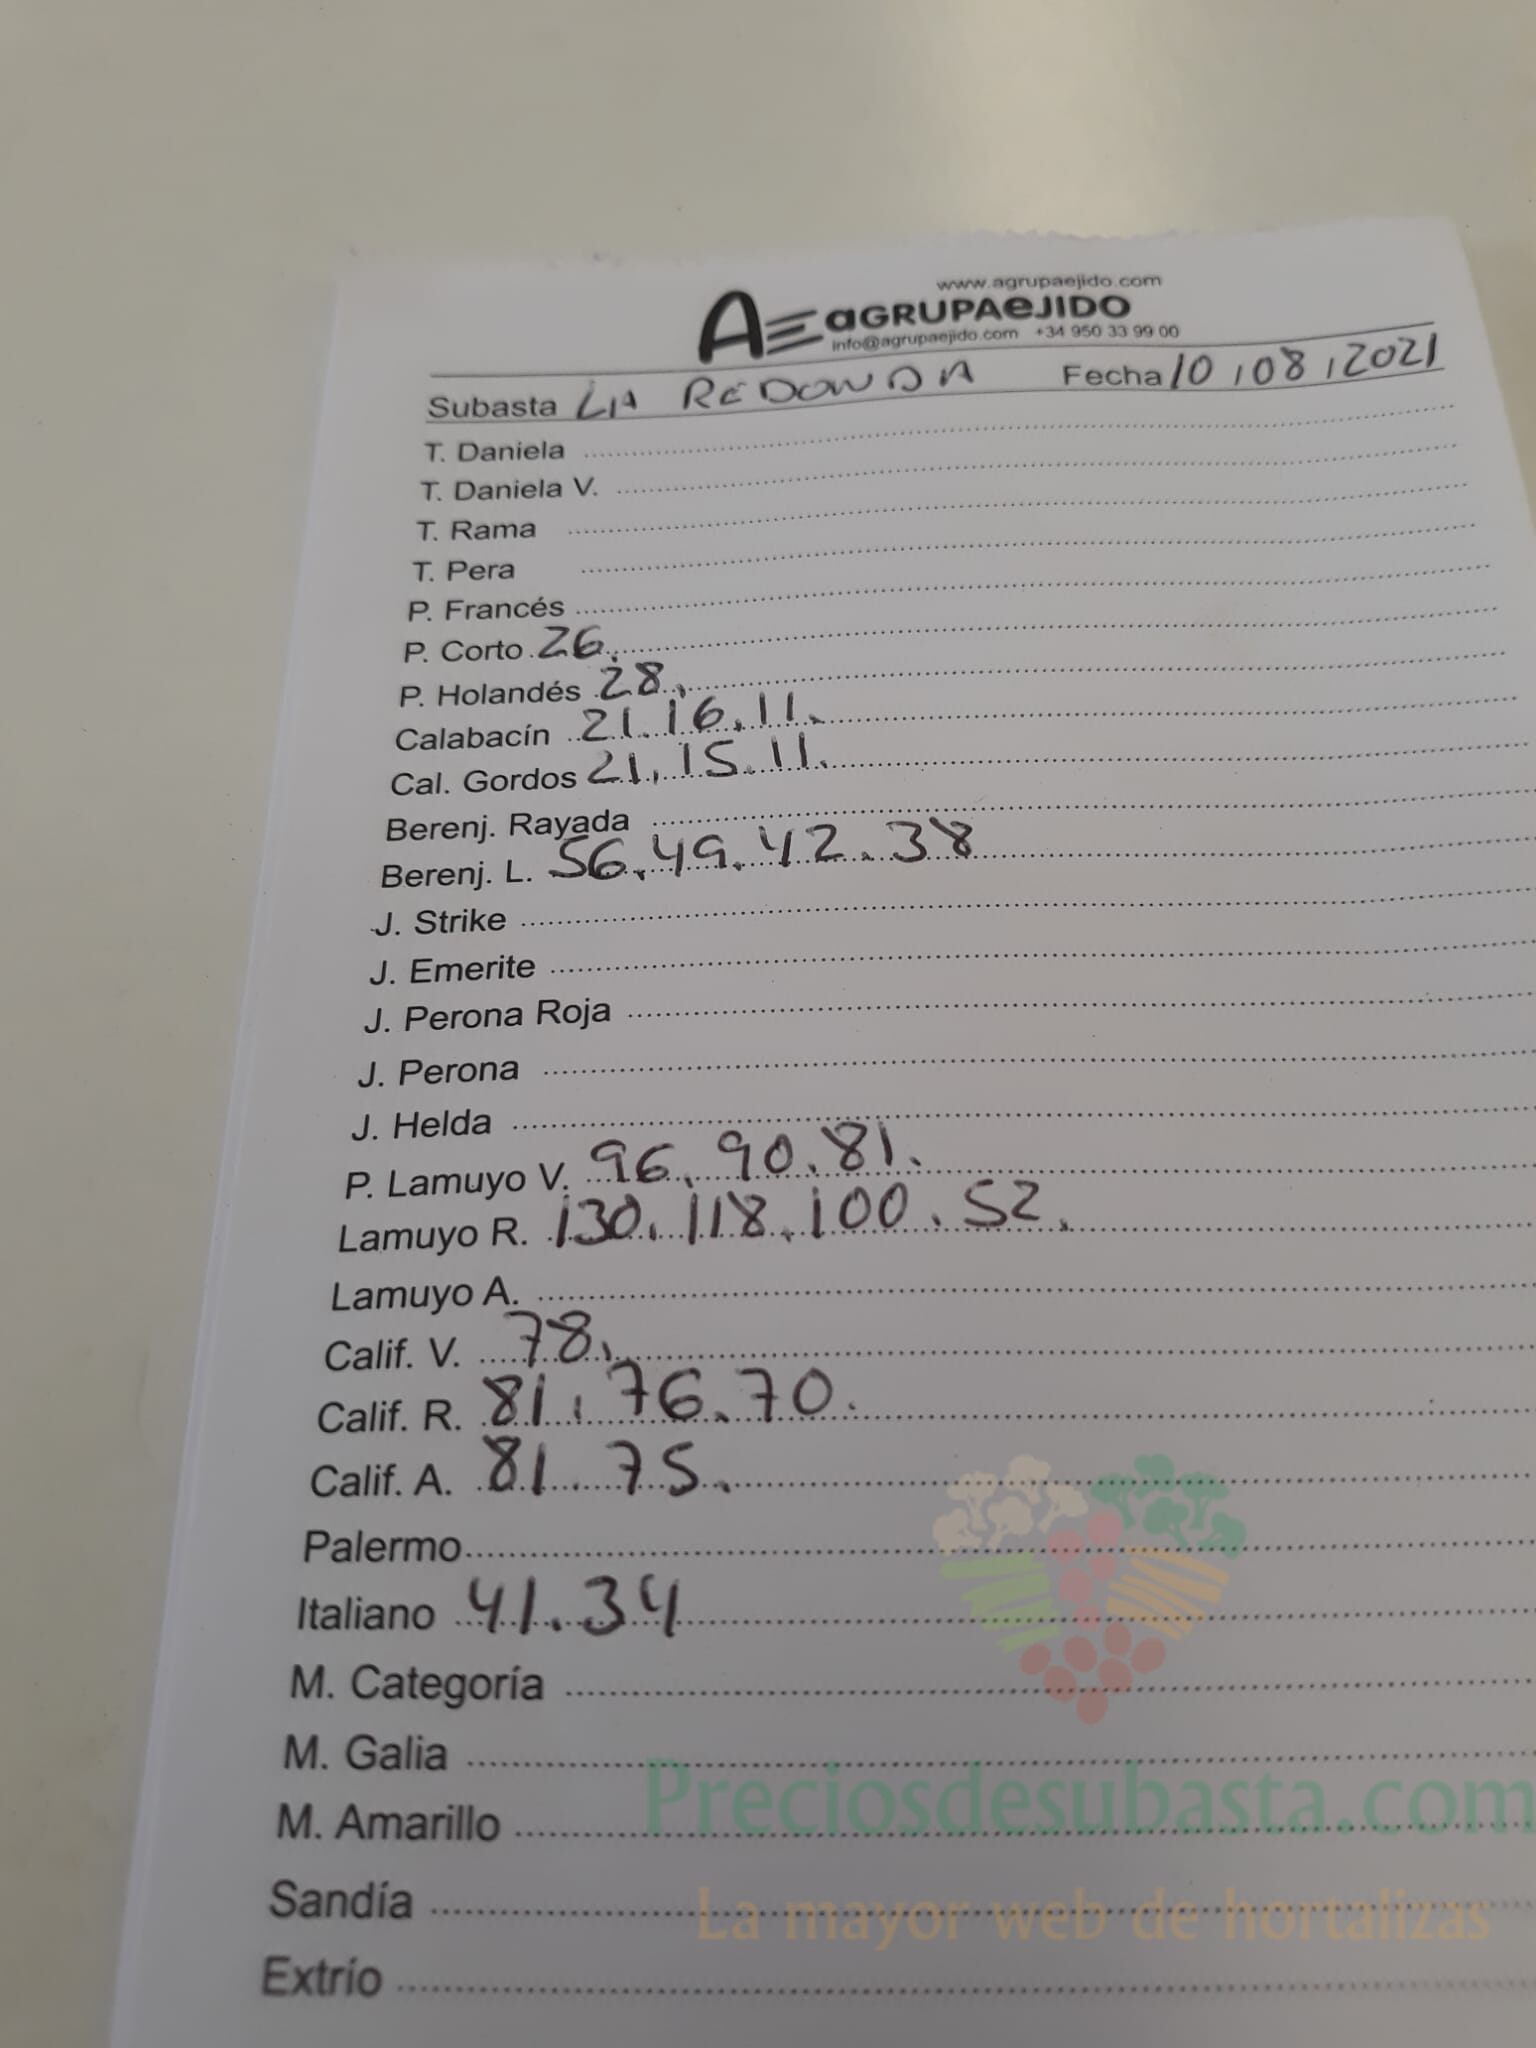 www.agrupaejido.com
AE aGRUPAeJIDO
info@agrupaejido.com +34 950 33 99 00
Subasta LA REDONDA Fecha 10,08,2021
T. Daniela
T. Daniela V.
T. Rama
T. Pera
P. Francés
P. Corto 26.
P. Holandés 28.
Calabacín 21.16.11.
Cal. Gordos 21.15.11.
Berenj. Rayada
Berenj. L. 56.49.42.38
J. Strike
J. Emerite
J. Perona Roja
J. Perona
J. Helda
P. Lamuyo V. 96.90.81.
Lamuyo R. 130.118.100.52.
Lamuyo A.
Calif. V. 78.
Calif. R. 81.76.70.
Calif. A. 81.75.
Palermo
Italiano 41.34
M. Categoría
M. Galia
M. Amarillo
Sandía
Extrío
Preciosdesubasta.com
La mayor web de hortalizas